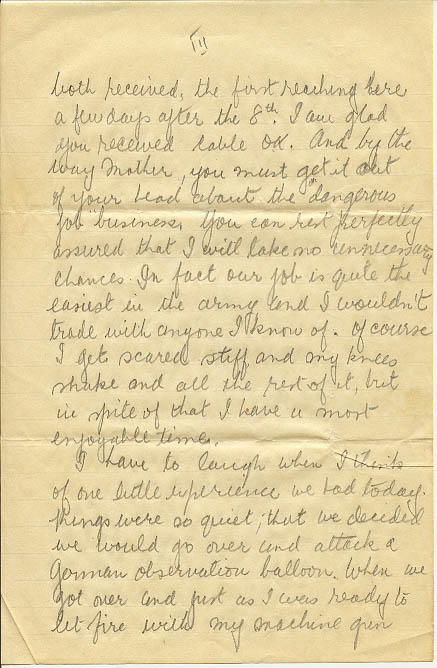 III
both received, the first reaching here
a few days after the 8th. I am glad
you received cable OK. And by the
way Mother, you must get it out
of your head about the "dangerous
job" business. You can rest perfectly
assured that I will take no unnecessary
chances. In fact our job is quite the
easiest in the army and I wouldn't
trade with anyone I know of. Of course
I get scared stiff and my knees
shake and all the rest of it, but
in spite of that I have a most
enjoyable time.
I have to laugh when I think
of one little experience we had today.
Things were so quiet, that we decided
we would go over and attack a
German observation balloon. When we
got over and just as I was ready to
let fire with my machine gun